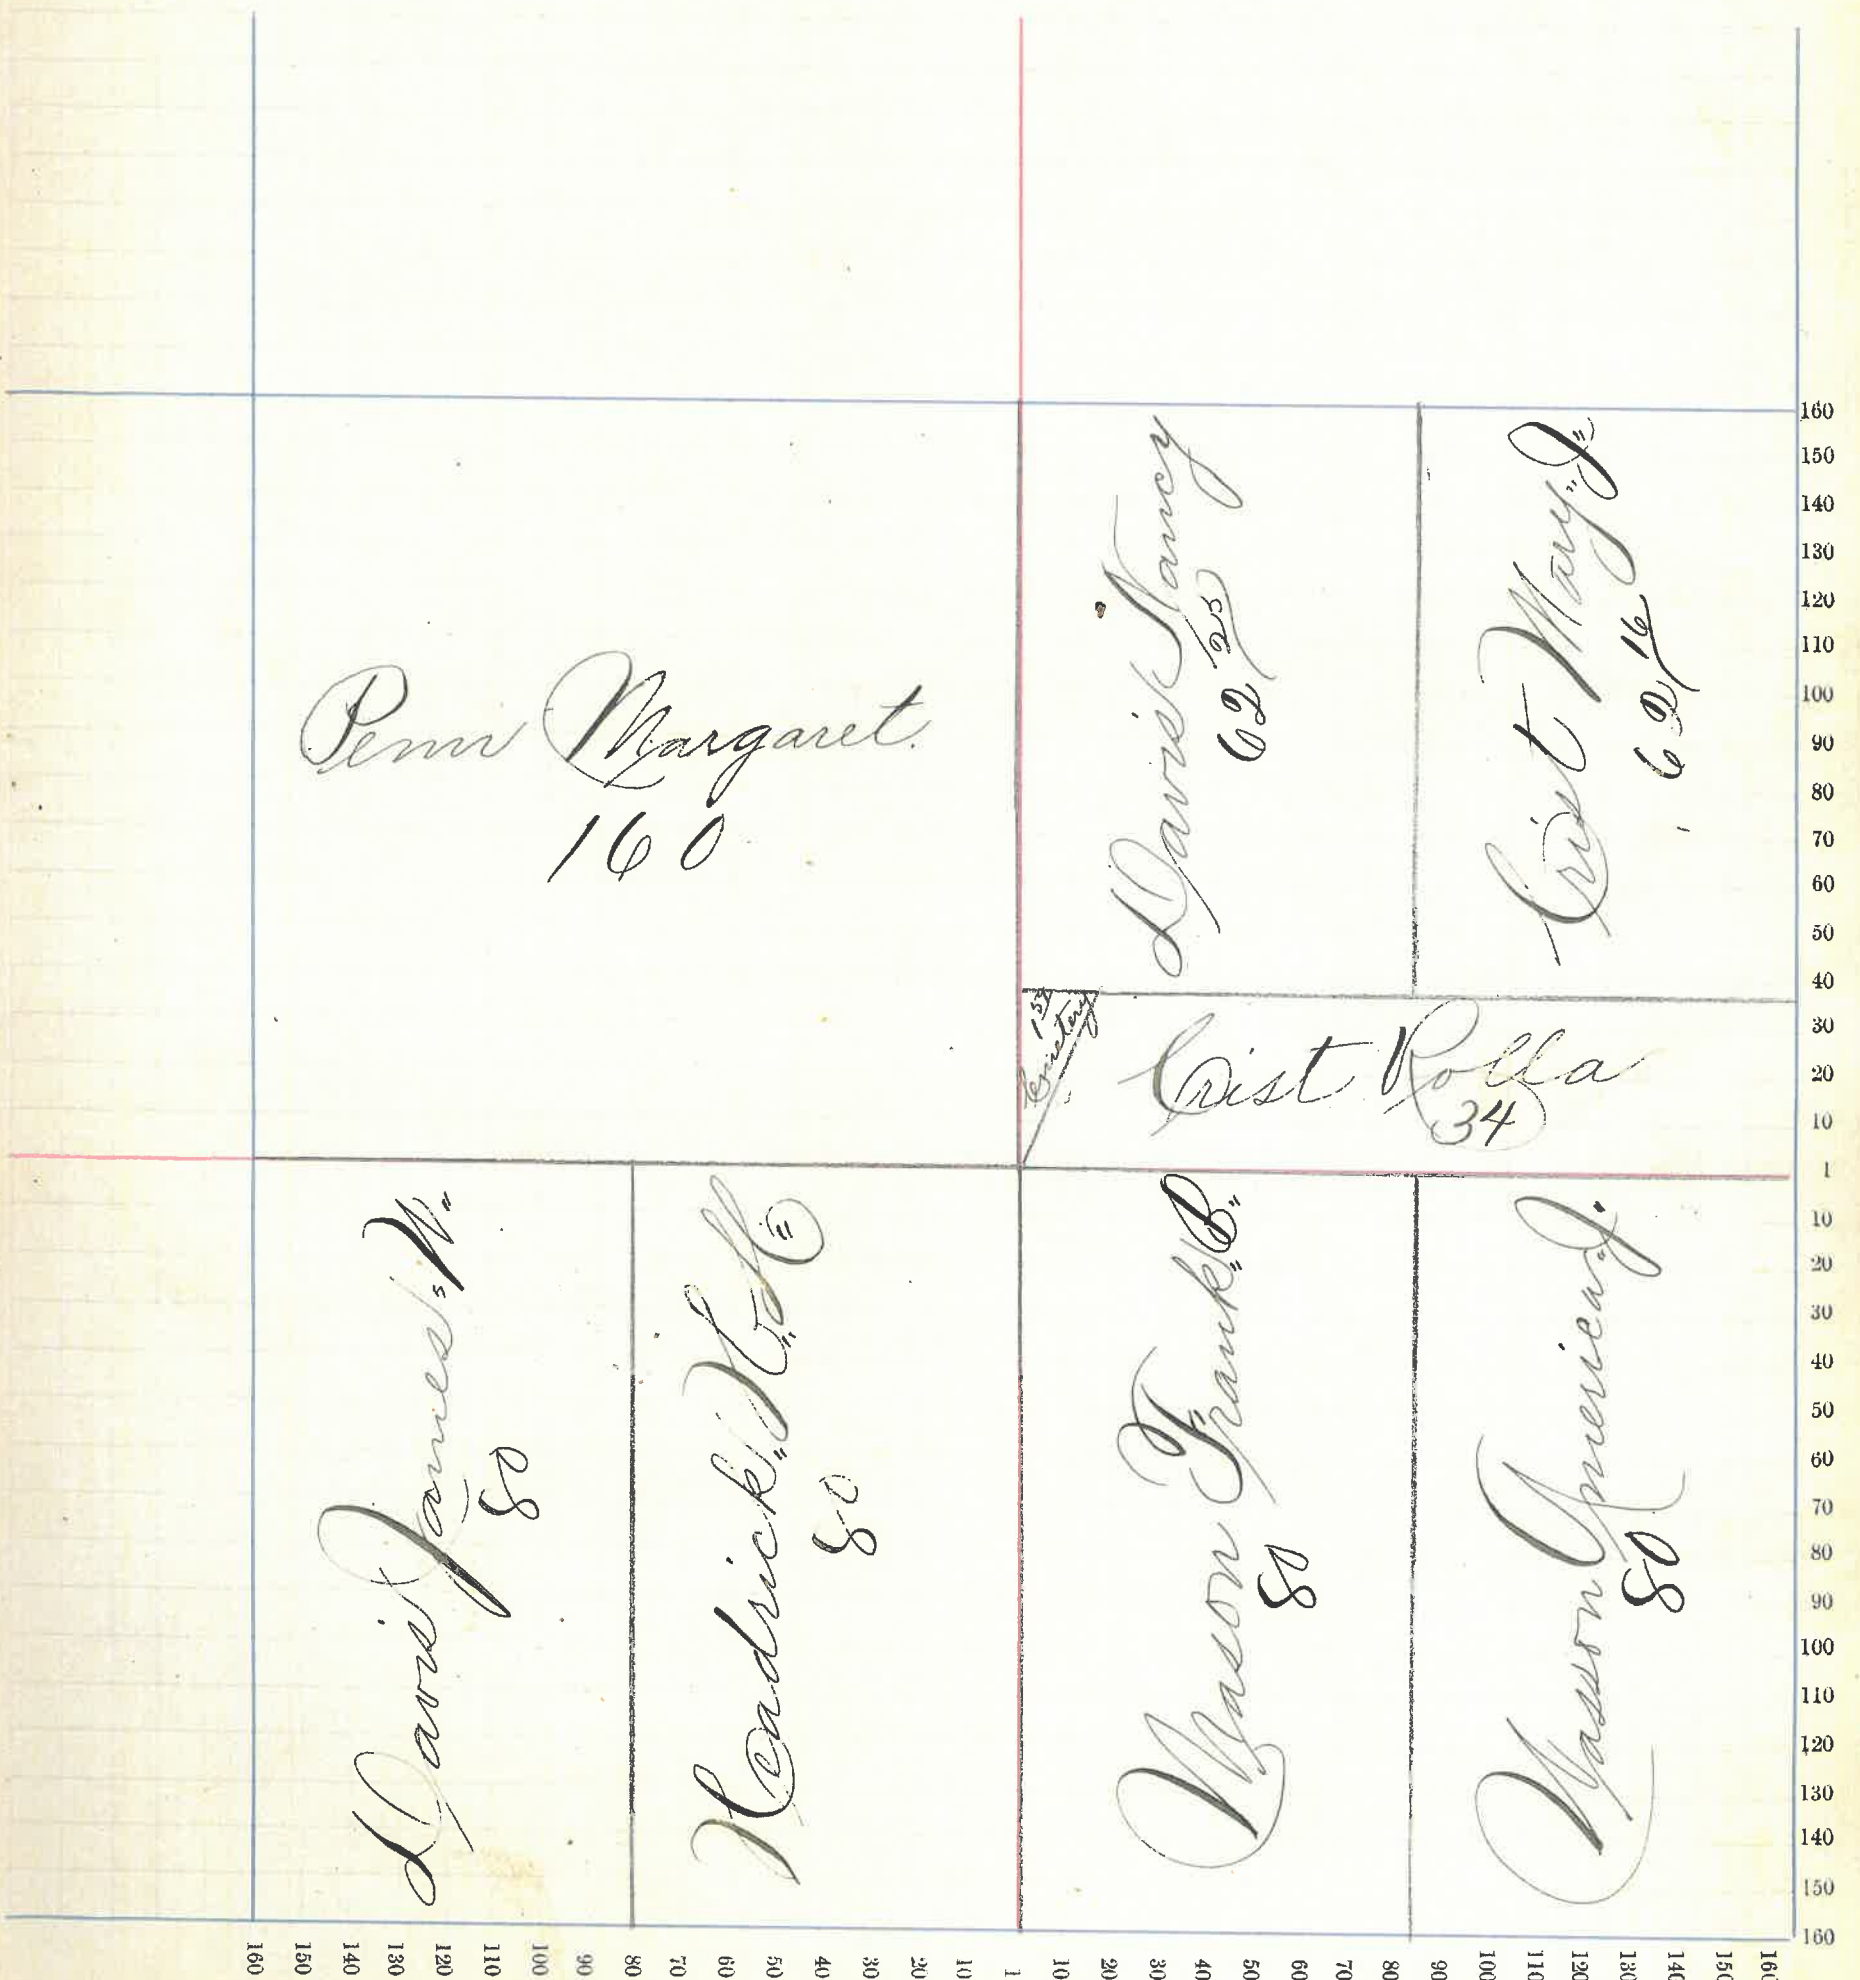 Penn Margaret.
160
Davis Nancy
62 25
Crist Mary "J"
62 16
Cemetery
Crist Rolla
34
Davis James "W"
80
Headrick "H" "H"
80
Mason Frank "B"
80
Masson American "J"
80
160
150
140
130
120
110
100
90
80
70
60
50
40
30
20
10
1
10
20
30
40
50
60
70
80
90
100
110
120
130
140
150
160
160 150 140 130 120 110 100 90 80 70 60 50 40 30 20 10 1 10 20 30 40 50 60 70 80 90 100 110 120 130 140 150 160